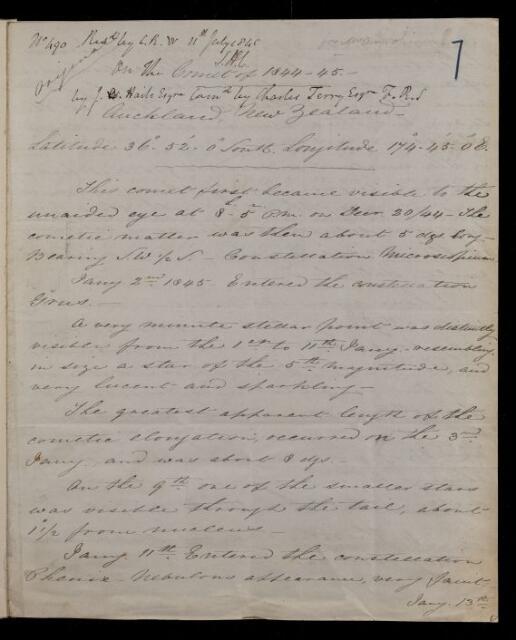 No 490 Recd by C. R. W 11th July 1845
S.H.C.
7
On the Comet of 1844-45.-
by J. Esqre Comd by Charles Terry Esqre F.R.S
Auckland New Zealand-
Latitude 36° 52' 0" South. Longitude 174° 45' 0" E.
This comet first became visible to the
unaided eye at 8h 5m P.M. on Decr 20/44 - The
cometic matter was then about 5 dgs long-
Bearing S.W ½ S. - Constellation Microscopium
Jany 2nd 1845. Entered the constellation
Grus -
A very minute stellar point was distinctly
visible from the 1st to 11th Jany - resembling
in size a star of the 5th magnitude, and
very lucent and sparkling -
The greatest apparent length of the
cometic elongation, occurred on the 3rd
Jany, and was about 8 dgs. -
On the 9th one of the smaller stars
was visible through the tail, about
1°½ from nucleus -
Jany 11th Entered the constellation
Phenix - Nebulous appearance, very faint
Jany. 13th